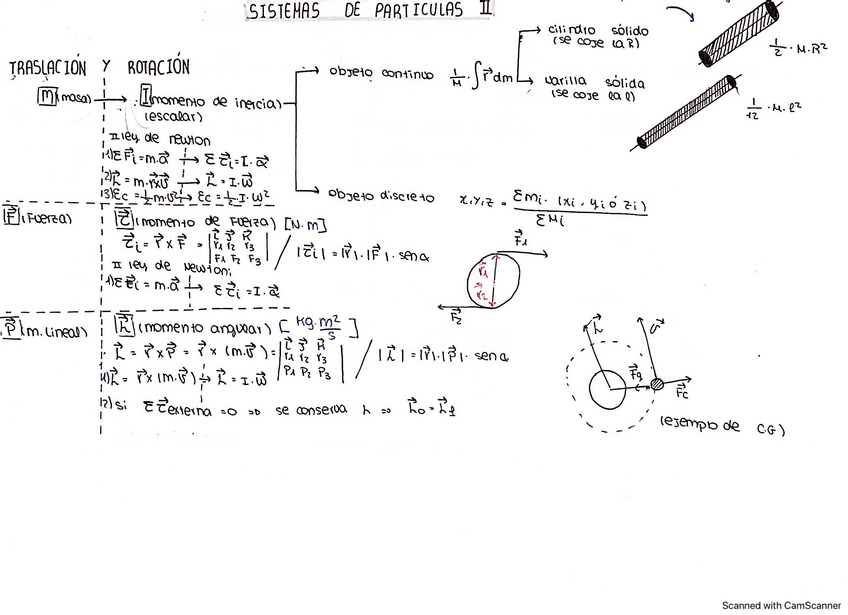 SISTEMAS DE PARTICULAS II
TRASLACIÓN Y ROTACIÓN
m (masa) → I (momento de inercia)
(escalar)
objeto continuo 1/M · ∫ r⃗ dm
cilindro sólido
(se coje la R)
1/2 · M · R²
varilla sólida
(se coje la l)
1/12 · M · l²
objeto discreto x, y, z = Σmi · (xi, yi ó zi) / ΣMi
II ley de newton
1) ΣF⃗i = m.a⃗ → Στ⃗i = I.α⃗
2) L⃗ = m.r⃗xv⃗ → L⃗ = I.w⃗
3) Ec = 1/2 m.v² → Ec = 1/2 . I. w²
F⃗ (Fuerza)
τ⃗ (momento de Fuerza) [N.m]
τ⃗i = r⃗ x F⃗ = | i⃗ j⃗ k⃗ |
| r1 r2 r3 |
| F1 F2 F3 |
/ |τ⃗i| = |r⃗|.|F⃗|. sen α
II ley de Newton:
1) Στ⃗i = m.a⃗ → Στ⃗i = I.α⃗
F⃗1
r⃗1 = r⃗2
F⃗2
P⃗ (m. lineal)
L⃗ (momento angular) [kg.m²/s]
· L⃗ = r⃗ x P⃗ = r⃗ x (m.v⃗) = | i⃗ j⃗ k⃗ |
| r1 r2 r3 |
| P1 P2 P3 |
/ |L⃗| = |r⃗|.|P⃗|. sen α
1) L⃗ = r⃗ x (m.v⃗) → L⃗ = I.w⃗
2) si Στ⃗ externa = 0 ⇒ se conserva L ⇒ L⃗o = L⃗f
L⃗
v⃗
F⃗g
F⃗c
(ejemplo de C.G)
Scanned with CamScanner